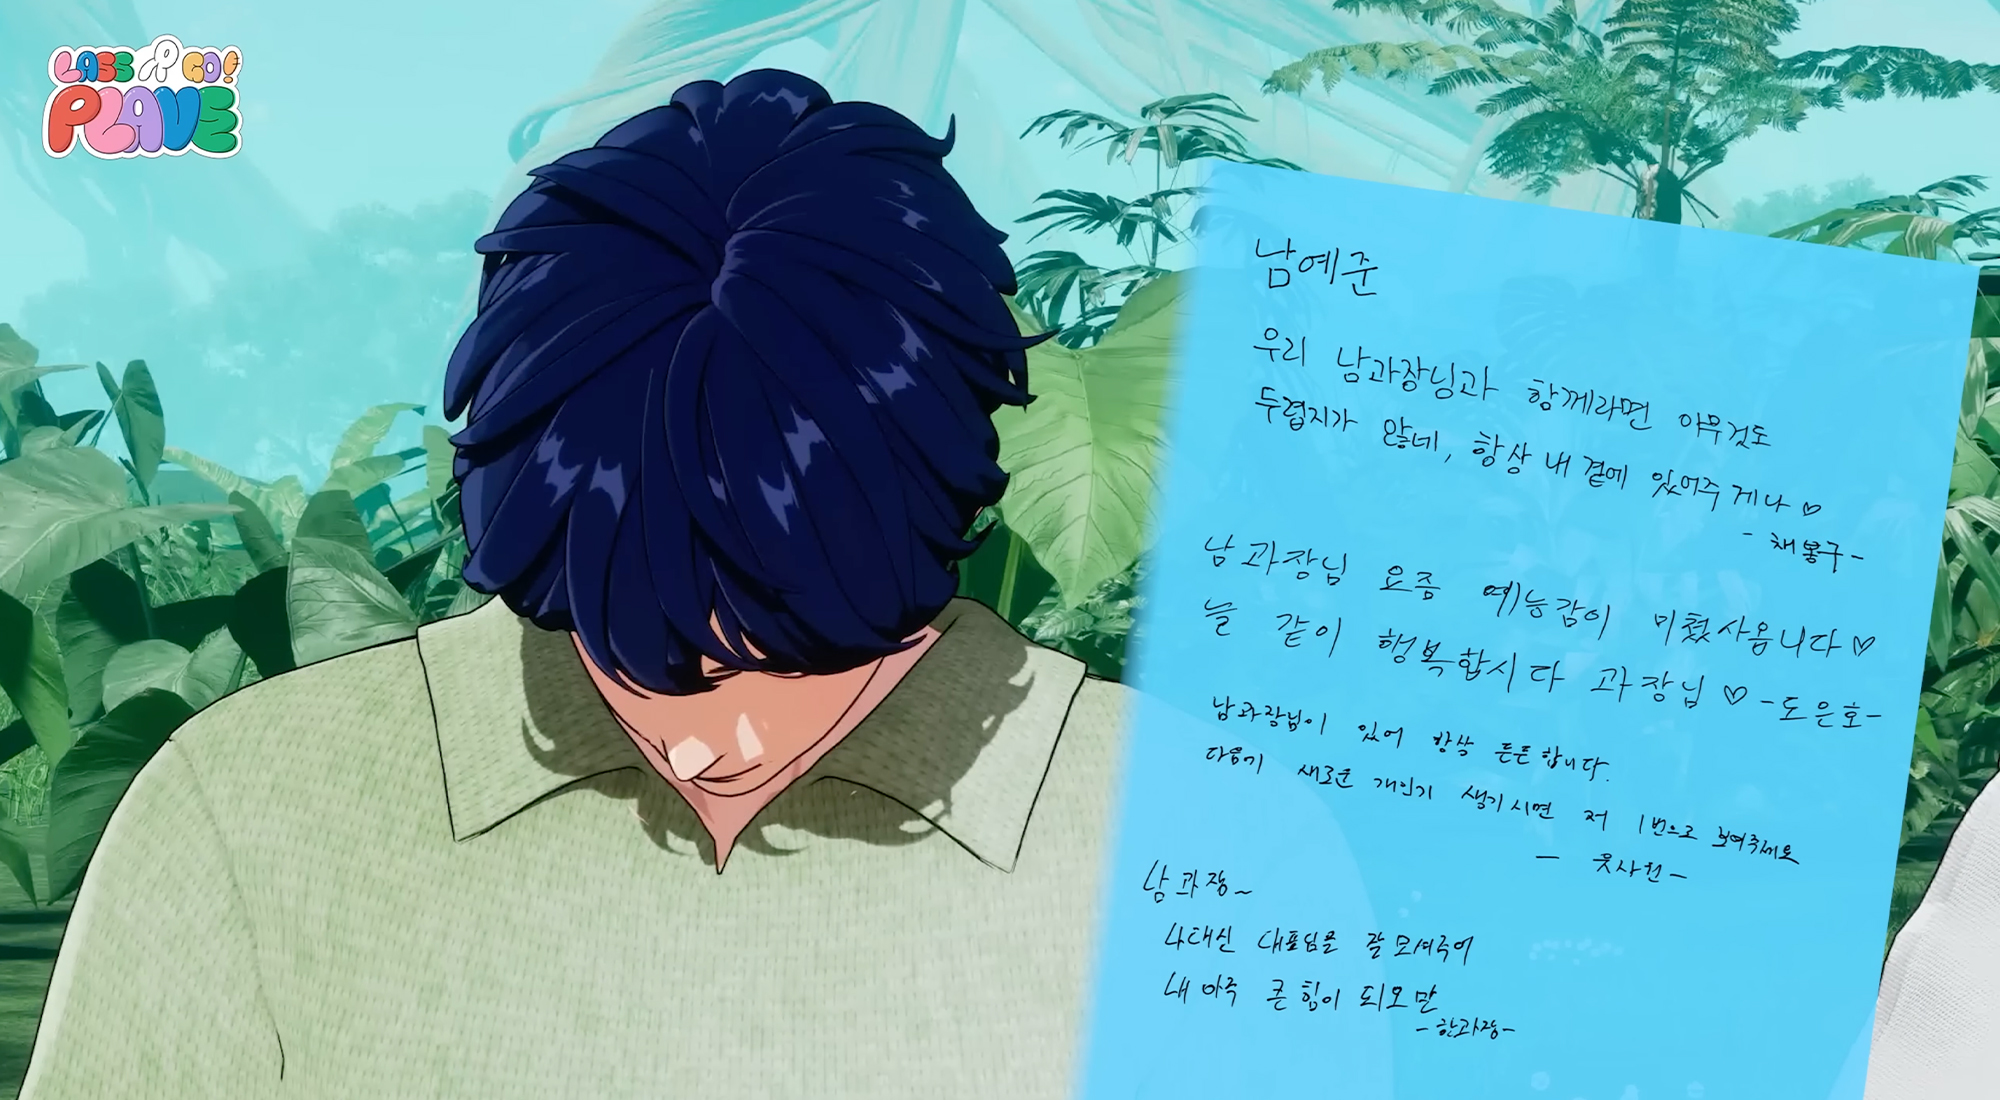 LASS GO!
PLAVE
남예준
우리 남과장님과 함께라면 아무것도
두렵지가 않네, 항상 내 곁에 있어주게나♡
-채봉구-
남과장님 요즘 예능감이 미쳤사옵니다♡
늘 같이 행복합시다 과장님♡ -도은호-
남과장님이 있어 항상 든든합니다.
다음에 새로운 개인기 생기시면 저 1번으로 보여주세요
- 웃사원-
남과장~
나대신 대표님을 잘 모셔주어
내 아주 큰 힘이 되오만
-한과장-